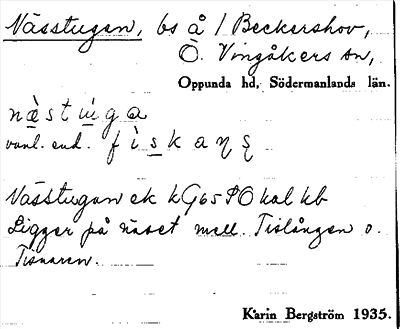 Nässtugan, bs å / Beckershov,
Ö. Vingåkers sn,
Oppunda hd, Södermanlands län.
næ̀stu̇ga
vanl. end. fìskaŋş
Nässtugan ek kG65SO kol kb
Ligger på näset mell. Tislången o.
Tisnaren.
Karin Bergström 1935.